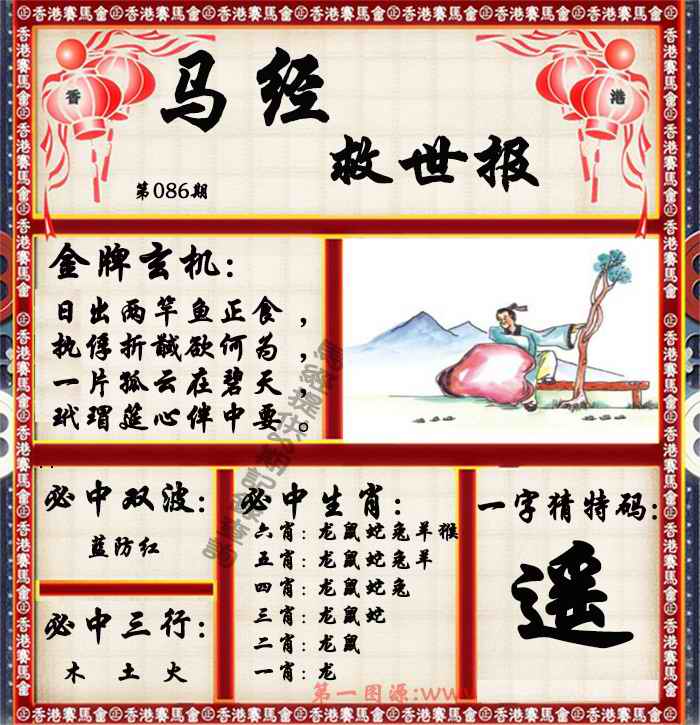 香港賽馬會
香 港
马经
救世报
第086期
金牌玄机：
日出两竿鱼正食，
执俘折馘欲何为，
一片孤云在碧天，
玳瑁筵心伴中要。
必中双波：
蓝防红
必中三行：
木 土 火
必中生肖：
六肖：龙鼠蛇兔羊猴
五肖：龙鼠蛇兔羊
四肖：龙鼠蛇兔
三肖：龙鼠蛇
二肖：龙鼠
一肖：龙
一字猜特码：
遥
第一图源:www